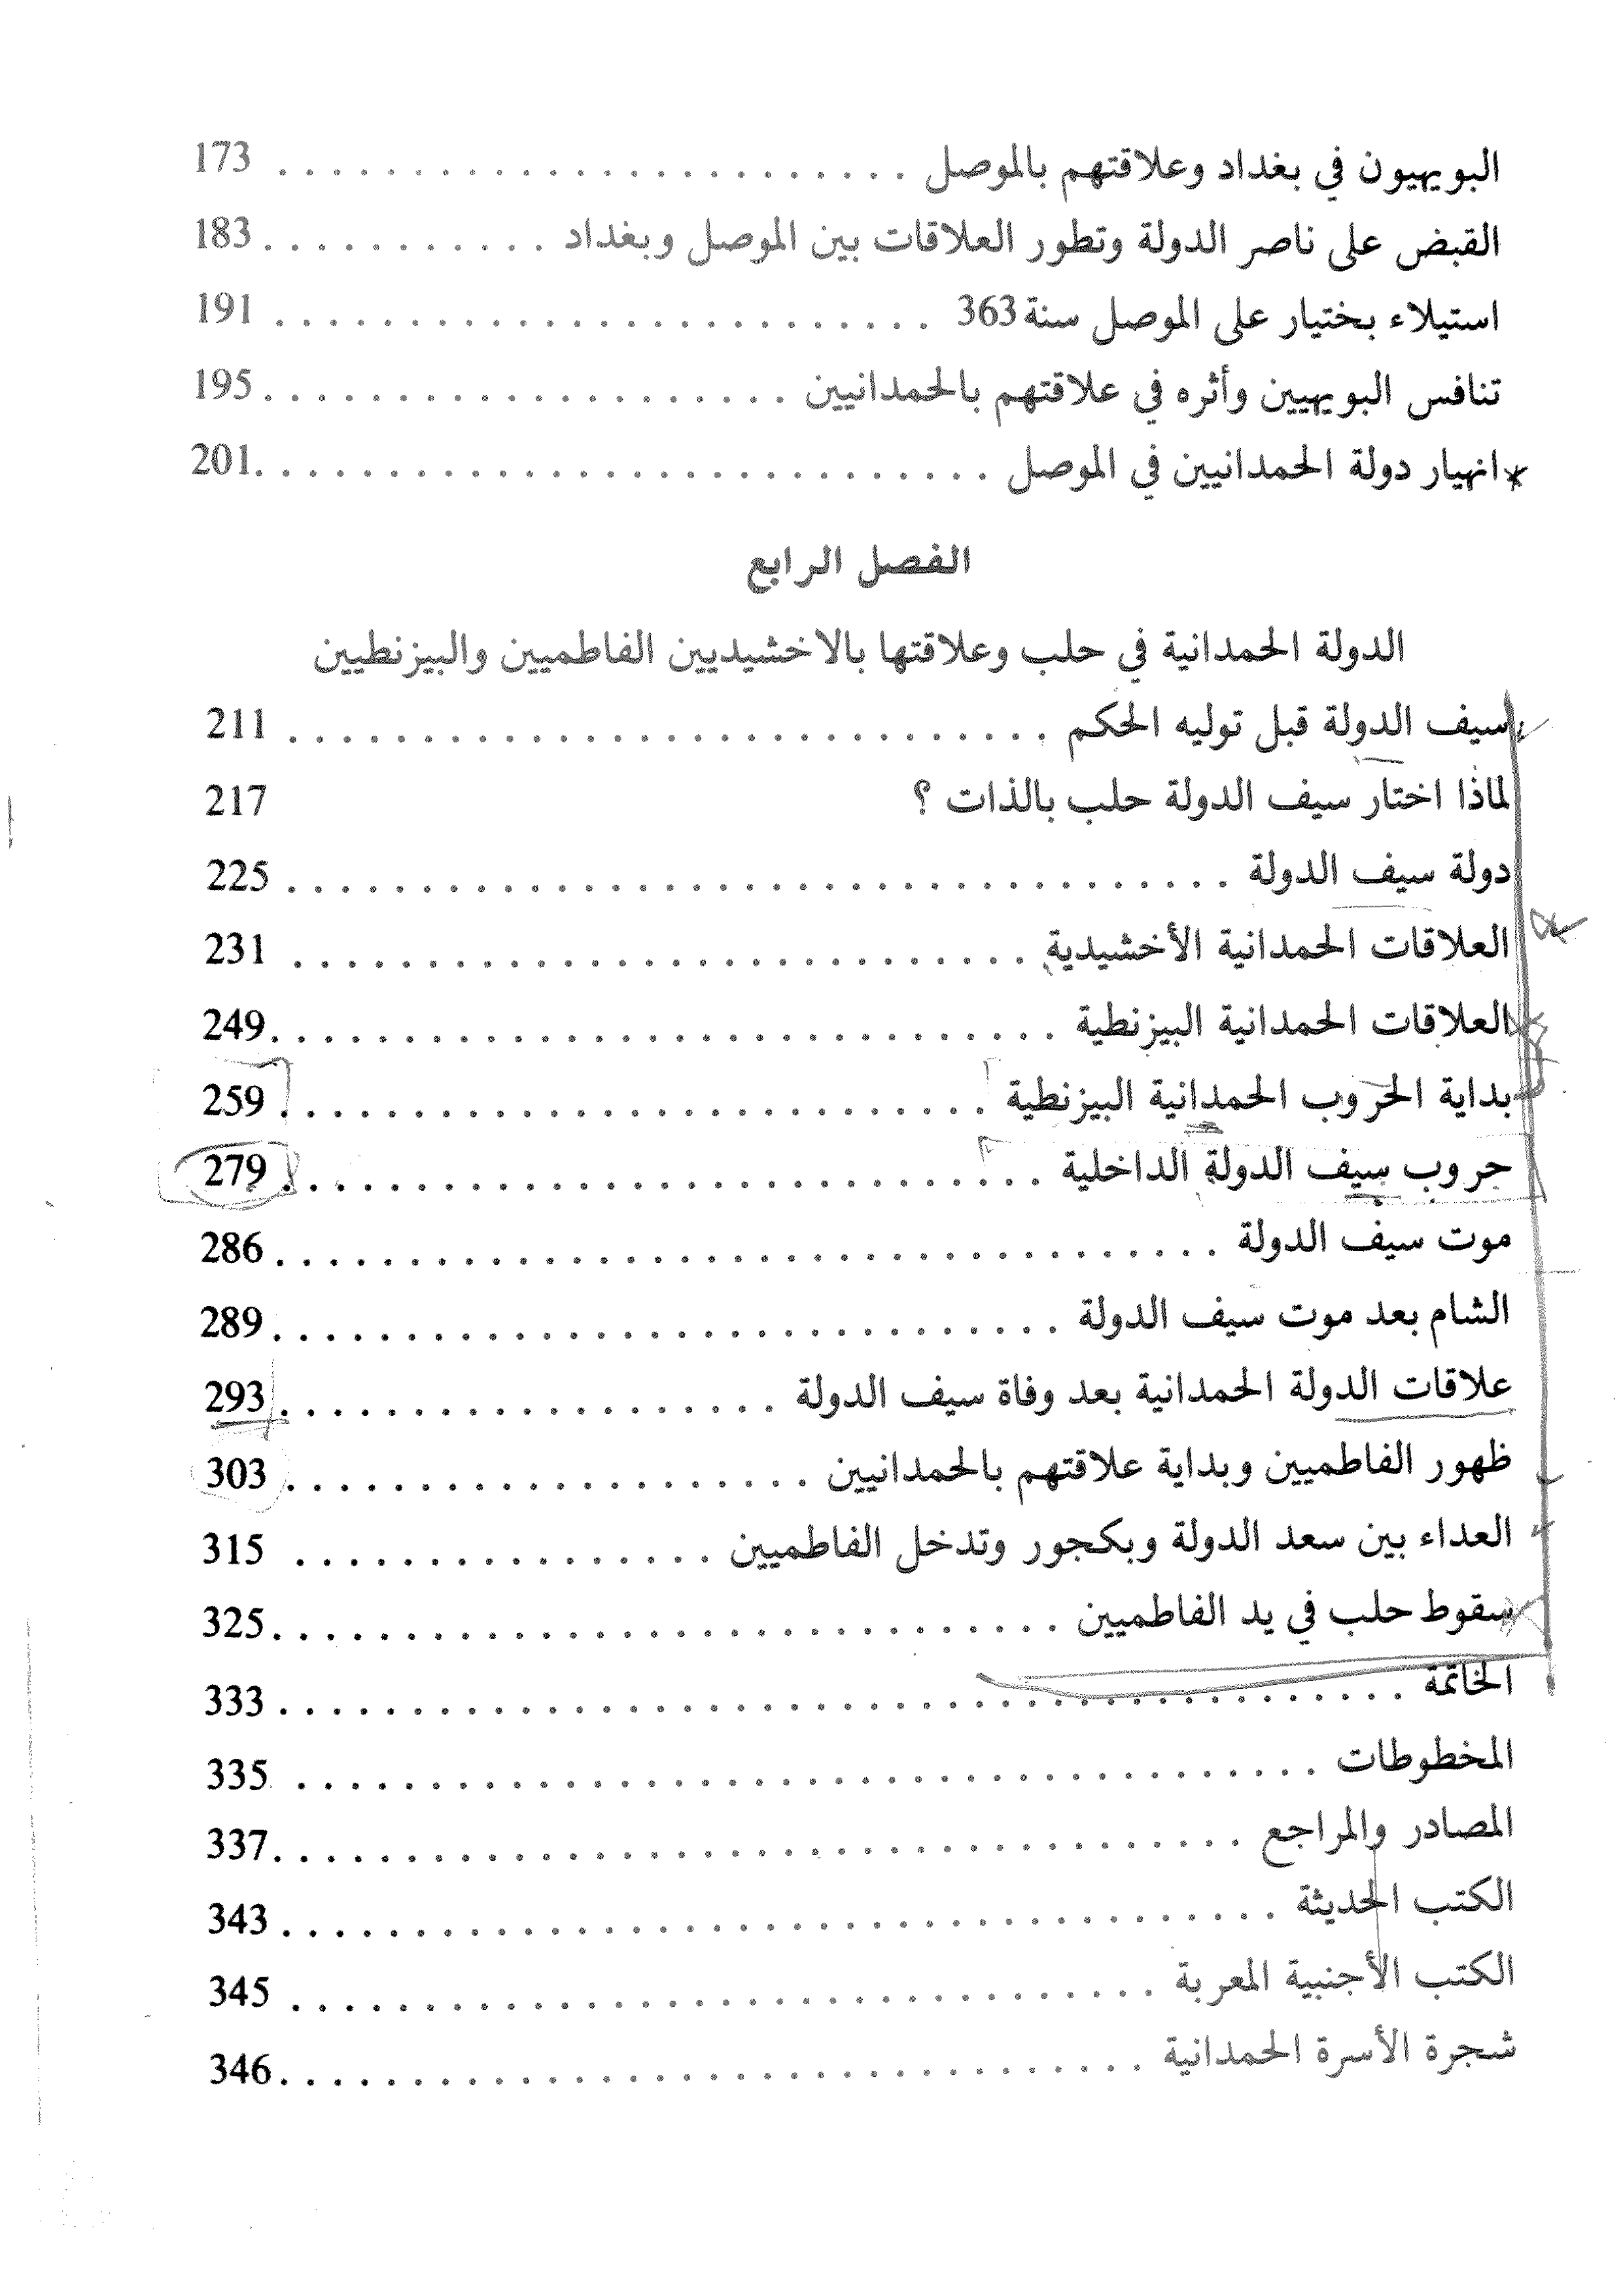 البويهيون في بغداد وعلاقتهم بالموصل . . . . . . . . . . . . . . . . . . . . . . . . 173
القبض على ناصر الدولة وتطور العلاقات بين الموصل وبغداد . . . . . . . . . . . 183
استيلاء بختيار على الموصل سنة 363 . . . . . . . . . . . . . . . . . . . . . . . . . 191
تنافس البويهيين وأثره في علاقتهم بالحمدانيين . . . . . . . . . . . . . . . . . . . . 195
* انهيار دولة الحمدانيين في الموصل . . . . . . . . . . . . . . . . . . . . . . . . . . . . 201
الفصل الرابع
الدولة الحمدانية في حلب وعلاقتها بالاخشيديين الفاطميين والبيزنطيين
سيف الدولة قبل توليه الحكم . . . . . . . . . . . . . . . . . . . . . . . . . . . . . 211
لماذا اختار سيف الدولة حلب بالذات ؟ 217
دولة سيف الدولة . . . . . . . . . . . . . . . . . . . . . . . . . . . . . . . . . . . . 225
العلاقات الحمدانية الأخشيدية . . . . . . . . . . . . . . . . . . . . . . . . . . . . 231
العلاقات الحمدانية البيزنطية . . . . . . . . . . . . . . . . . . . . . . . . . . . . . . 249
بداية الحروب الحمدانية البيزنطية . . . . . . . . . . . . . . . . . . . . . . . . . . . 259
حروب سيف الدولة الداخلية . . . . . . . . . . . . . . . . . . . . . . . . . . . . . 279
موت سيف الدولة . . . . . . . . . . . . . . . . . . . . . . . . . . . . . . . . . . . . 286
الشام بعد موت سيف الدولة . . . . . . . . . . . . . . . . . . . . . . . . . . . . . . 289
علاقات الدولة الحمدانية بعد وفاة سيف الدولة . . . . . . . . . . . . . . . . . . . 293
ظهور الفاطميين وبداية علاقتهم بالحمدانيين . . . . . . . . . . . . . . . . . . . . 303
العداء بين سعد الدولة وبكجور وتدخل الفاطميين . . . . . . . . . . . . . . . . 315
سقوط حلب في يد الفاطميين . . . . . . . . . . . . . . . . . . . . . . . . . . . . . . 325
الخاتمة . . . . . . . . . . . . . . . . . . . . . . . . . . . . . . . . . . . . . . . . . . . 333
المخطوطات . . . . . . . . . . . . . . . . . . . . . . . . . . . . . . . . . . . . . . . 335
المصادر والمراجع . . . . . . . . . . . . . . . . . . . . . . . . . . . . . . . . . . . . . 337
الكتب الحديثة . . . . . . . . . . . . . . . . . . . . . . . . . . . . . . . . . . . . . . 343
الكتب الأجنبية المعربة . . . . . . . . . . . . . . . . . . . . . . . . . . . . . . . . . 345
شجرة الأسرة الحمدانية . . . . . . . . . . . . . . . . . . . . . . . . . . . . . . . . . 346